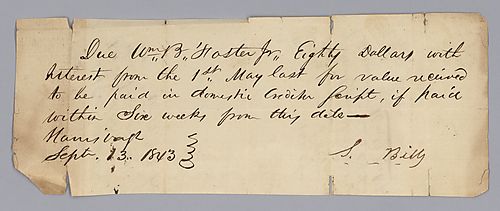 Due Wm. B. Foster Jr. Eighty Dollars with
Interest from the 1st May last for value received
to be paid in domestic Creditor Script, if paid
within Six weeks from this date —
Harrisburgh
Sept. 13. 1843
S. Bills